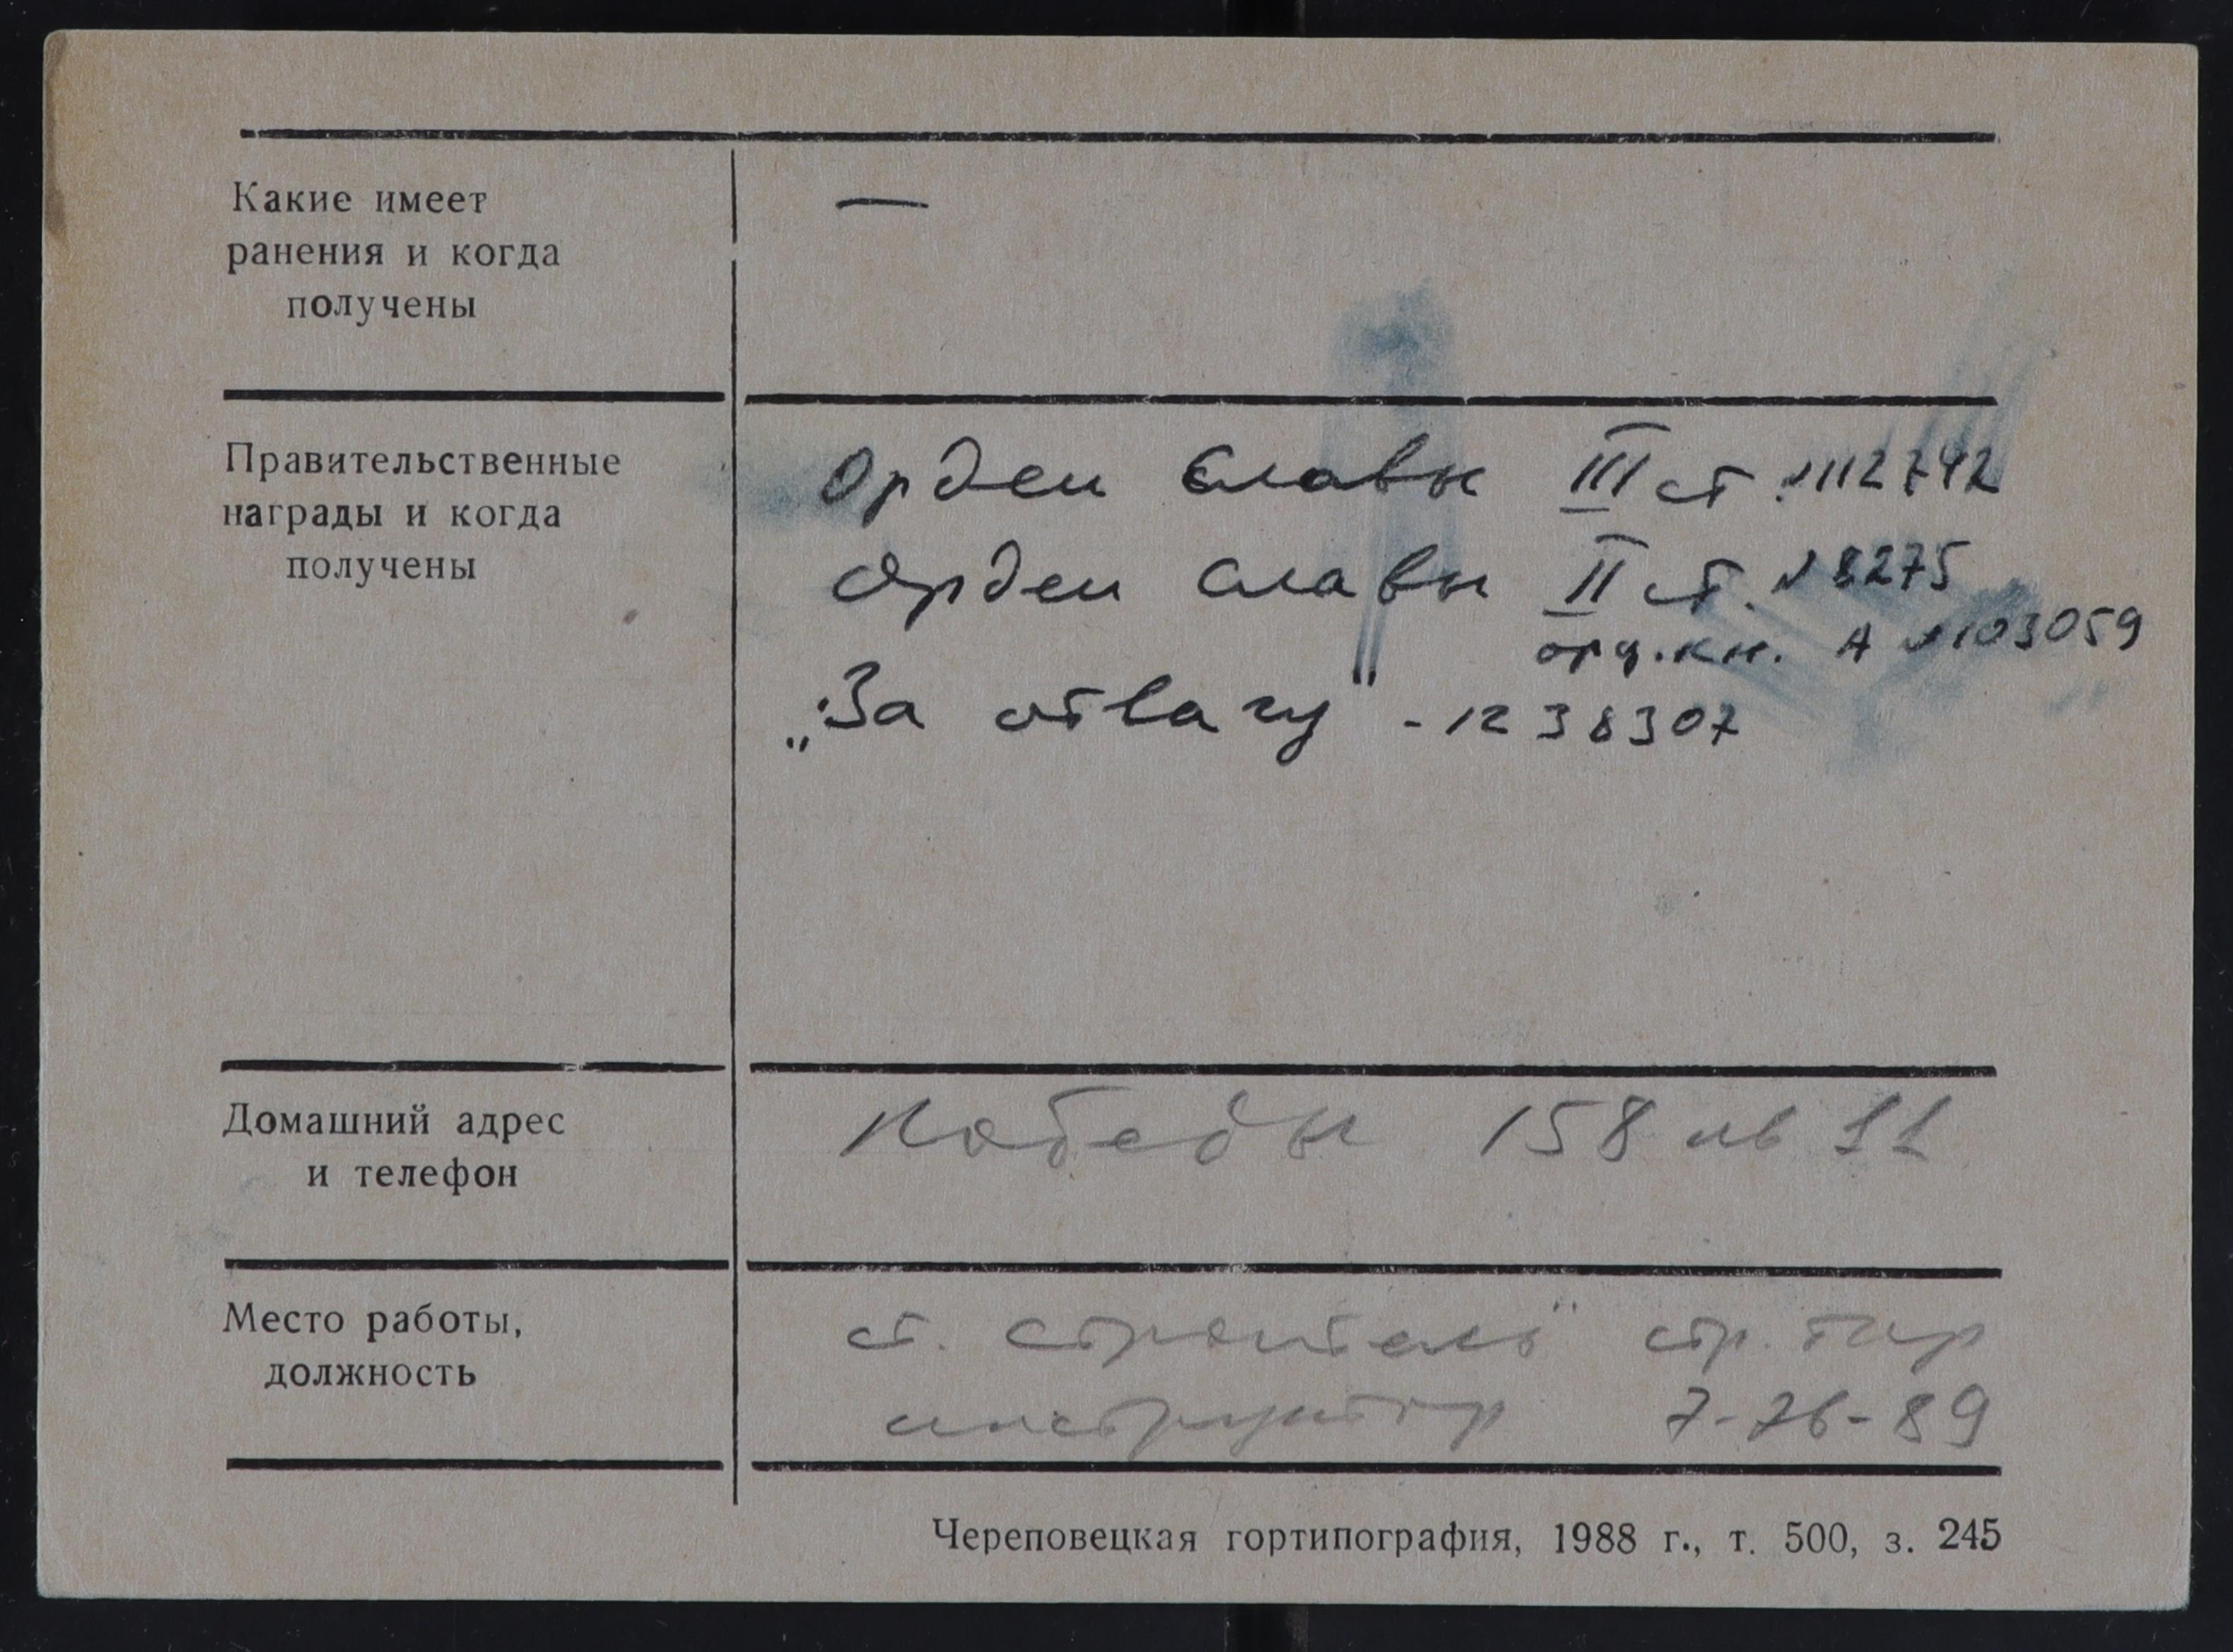 Какие имеет
ранения и когда
получены
—
Правительственные
награды и когда
получены
Орден Славы III ст №112742
Орден Славы II ст. №8275
орд.кн. А №103059
„За отвагу" - 1238307
Домашний адрес
и телефон
Победы 158 кв 11
Место работы,
должность
ст. строитель" стр. тир
инструктор 7-76-89
Череповецкая гортипография, 1988 г., т. 500, з. 245